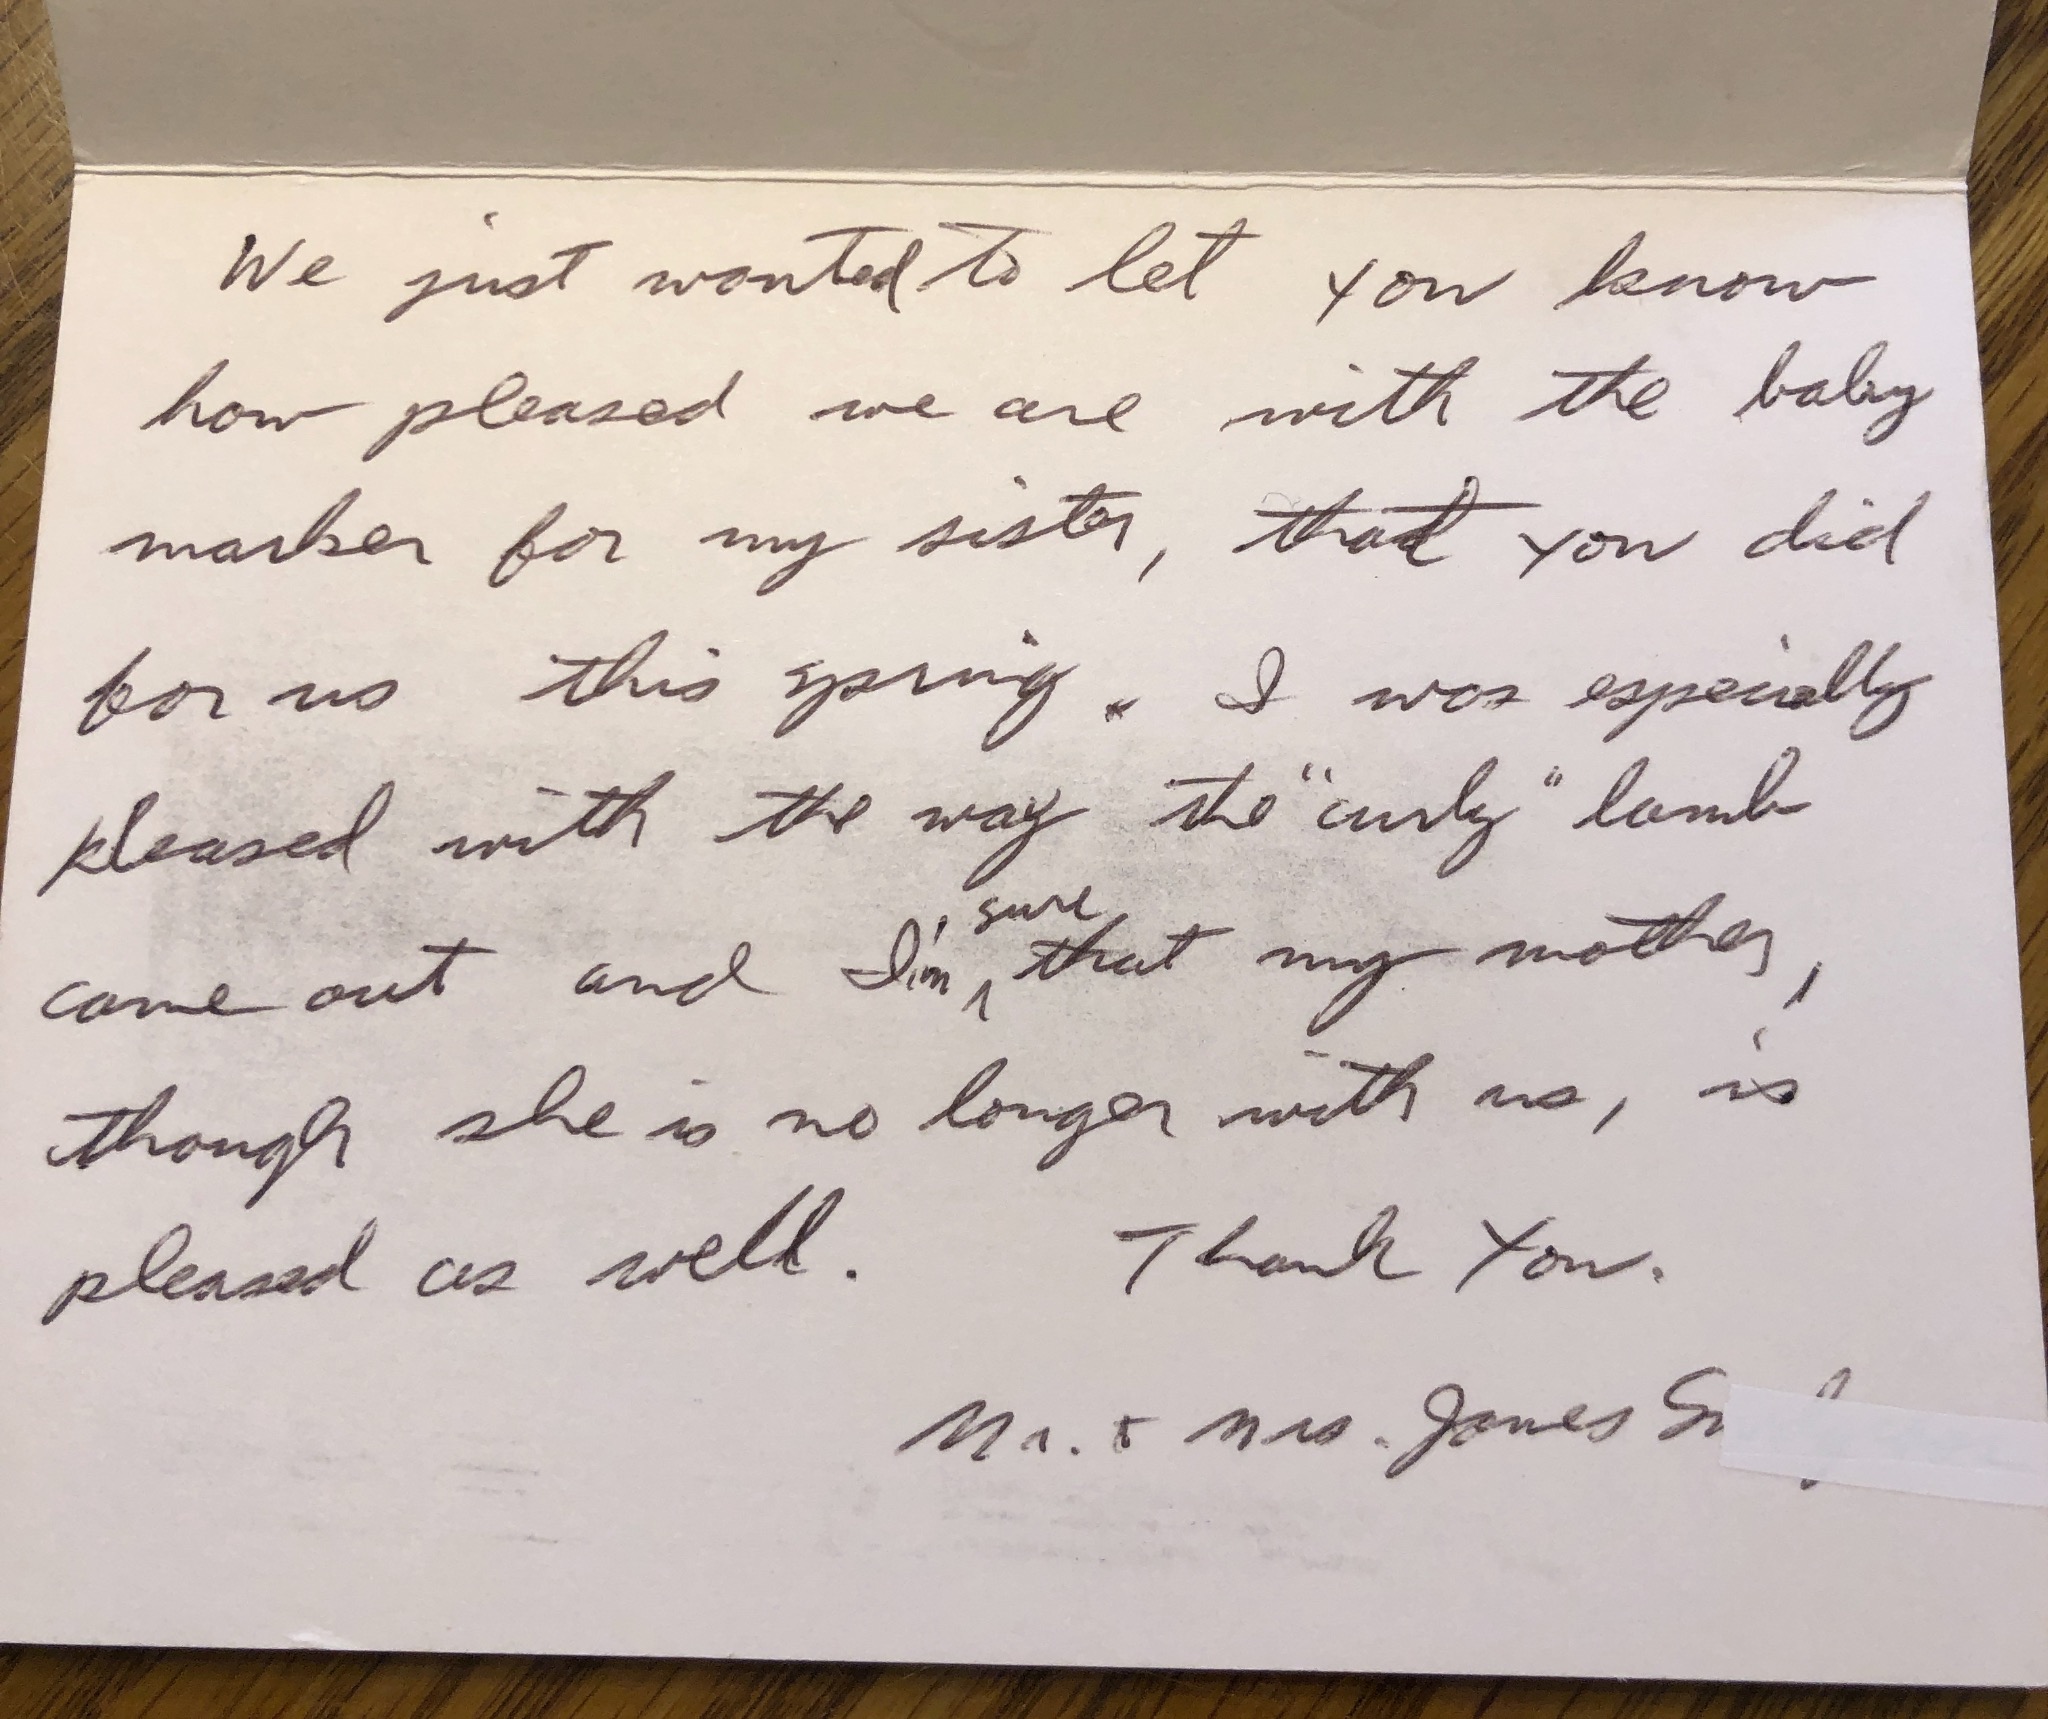 We just wanted to let you know
how pleased we are with the baby
marker for my sister, that you did
for us this spring. I was especially
pleased with the way the "curly" lamb
came out and I'm sure that my mother,
though she is no longer with us, is
pleased as well. Thank You.
Mr. & Mrs. James